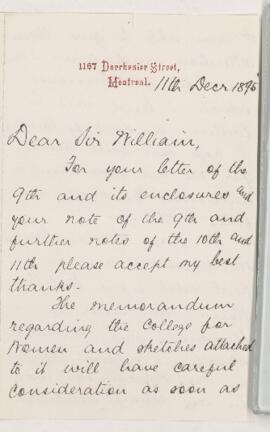 1157 Dorchester Street,
Montreal.
11th Decr 1895
Dear Sir William,
For your letter of the
9th and its enclosures and
your note of the 9th and
further notes of the 10th and
11th please accept my best
thanks.-
The memorandum
regarding the College for
Women and sketches attached
to it will have careful
consideration as soon as